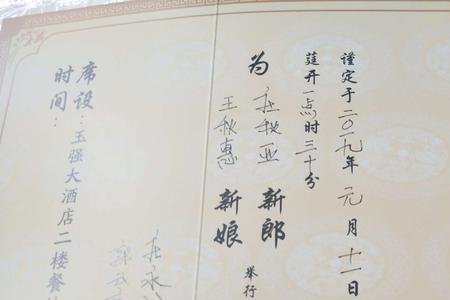 谨定于二〇一九年元月十一日
莛开一点时三十分
为
秋亚 新郎
王秋惠 新娘
举行
席设:玉强大酒店二楼餐
时间: